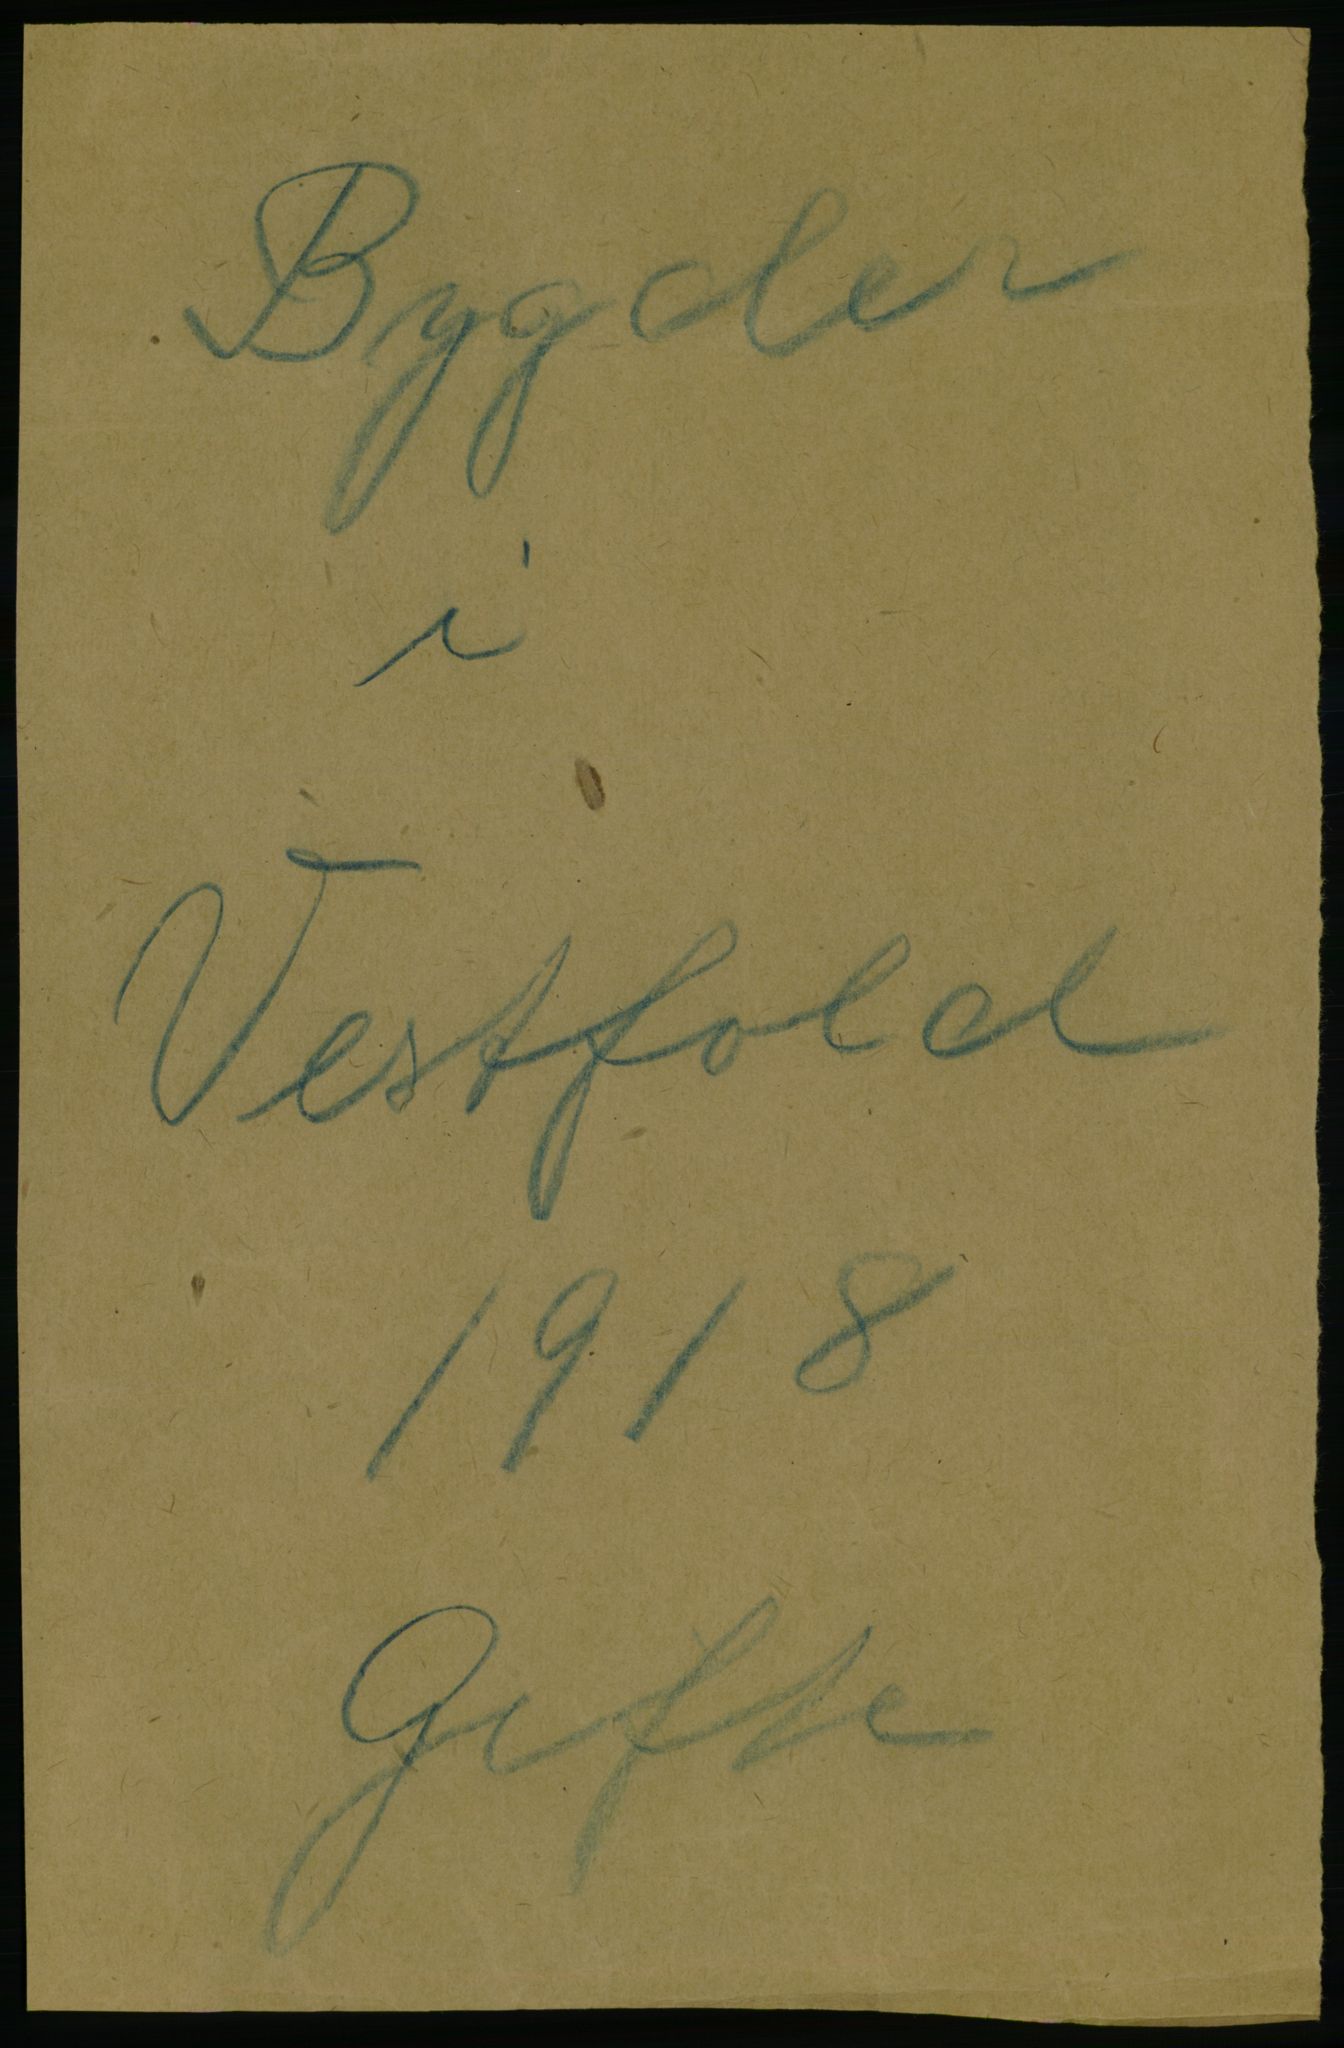 Bygder
i
Vestfold
1918
Gifte